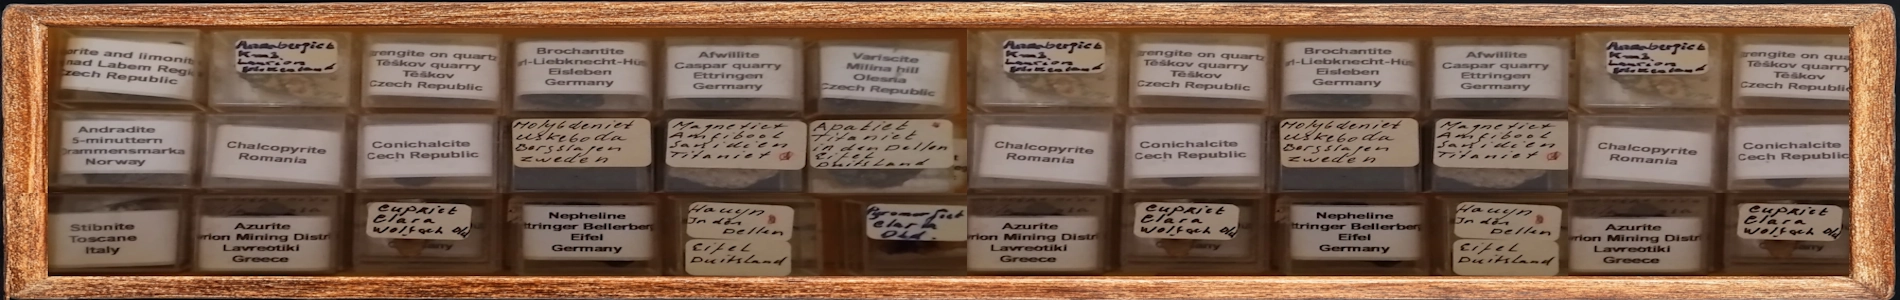 erite and limonit
nad Labem Regi
Czech Republic
Annabergiet
Km3
Lavrion
Griekenland
rengite on quart
Těškov quarry
Těškov
Czech Republic
Brochantite
rl-Liebknecht-Hü
Eisleben
Germany
Afwillite
Caspar quarry
Ettringen
Germany
Variscite
Milina hill
Olesna
Czech Republic
Annabergiet
Km3
Lavrion
Griekenland
rengite on quart
Těškov quarry
Těškov
Czech Republic
Brochantite
rl-Liebknecht-Hü
Eisleben
Germany
Afwillite
Caspar quarry
Ettringen
Germany
Annabergiet
Km3
Lavrion
Griekenland
rengite on qua
Těškov quarry
Těškov
Czech Republ
Andradite
5-minuttern
Grammensmarka
Norway
Chalcopyrite
Romania
Conichalcite
Cech Republic
Molybdeniet
uskeboda
Bergslagen
zweden
Magnetiet
Amfibool
Sanidien
Titaniet
Apatiet
Titaniet
in den Dellen
Eifel
Duitsland
Chalcopyrite
Romania
Conichalcite
Cech Republic
Molybdeniet
uskeboda
Bergslagen
zweden
Magnetiet
Amfibool
Sanidien
Titaniet
Chalcopyrite
Romania
Conichalcite
Cech Republic
Stibnite
Toscane
Italy
Azurite
rion Mining Distr
Lavreotiki
Greece
Cupriet
Clara
Wolfach Dld
any
Nepheline
ttringer Bellerber
Eifel
Germany
Hauyn
In den
Dellen
Eifel
Duitsland
Pyromorfiet
Clara
Dld.
Azurite
rion Mining Distr
Lavreotiki
Greece
Cupriet
Clara
Wolfach Dld
any
Nepheline
ttringer Bellerber
Eifel
Germany
Hauyn
In den
Dellen
Eifel
Duitsland
Azurite
rion Mining Distr
Lavreotiki
Greece
Cupriet
Clara
Wolfach Dld
any